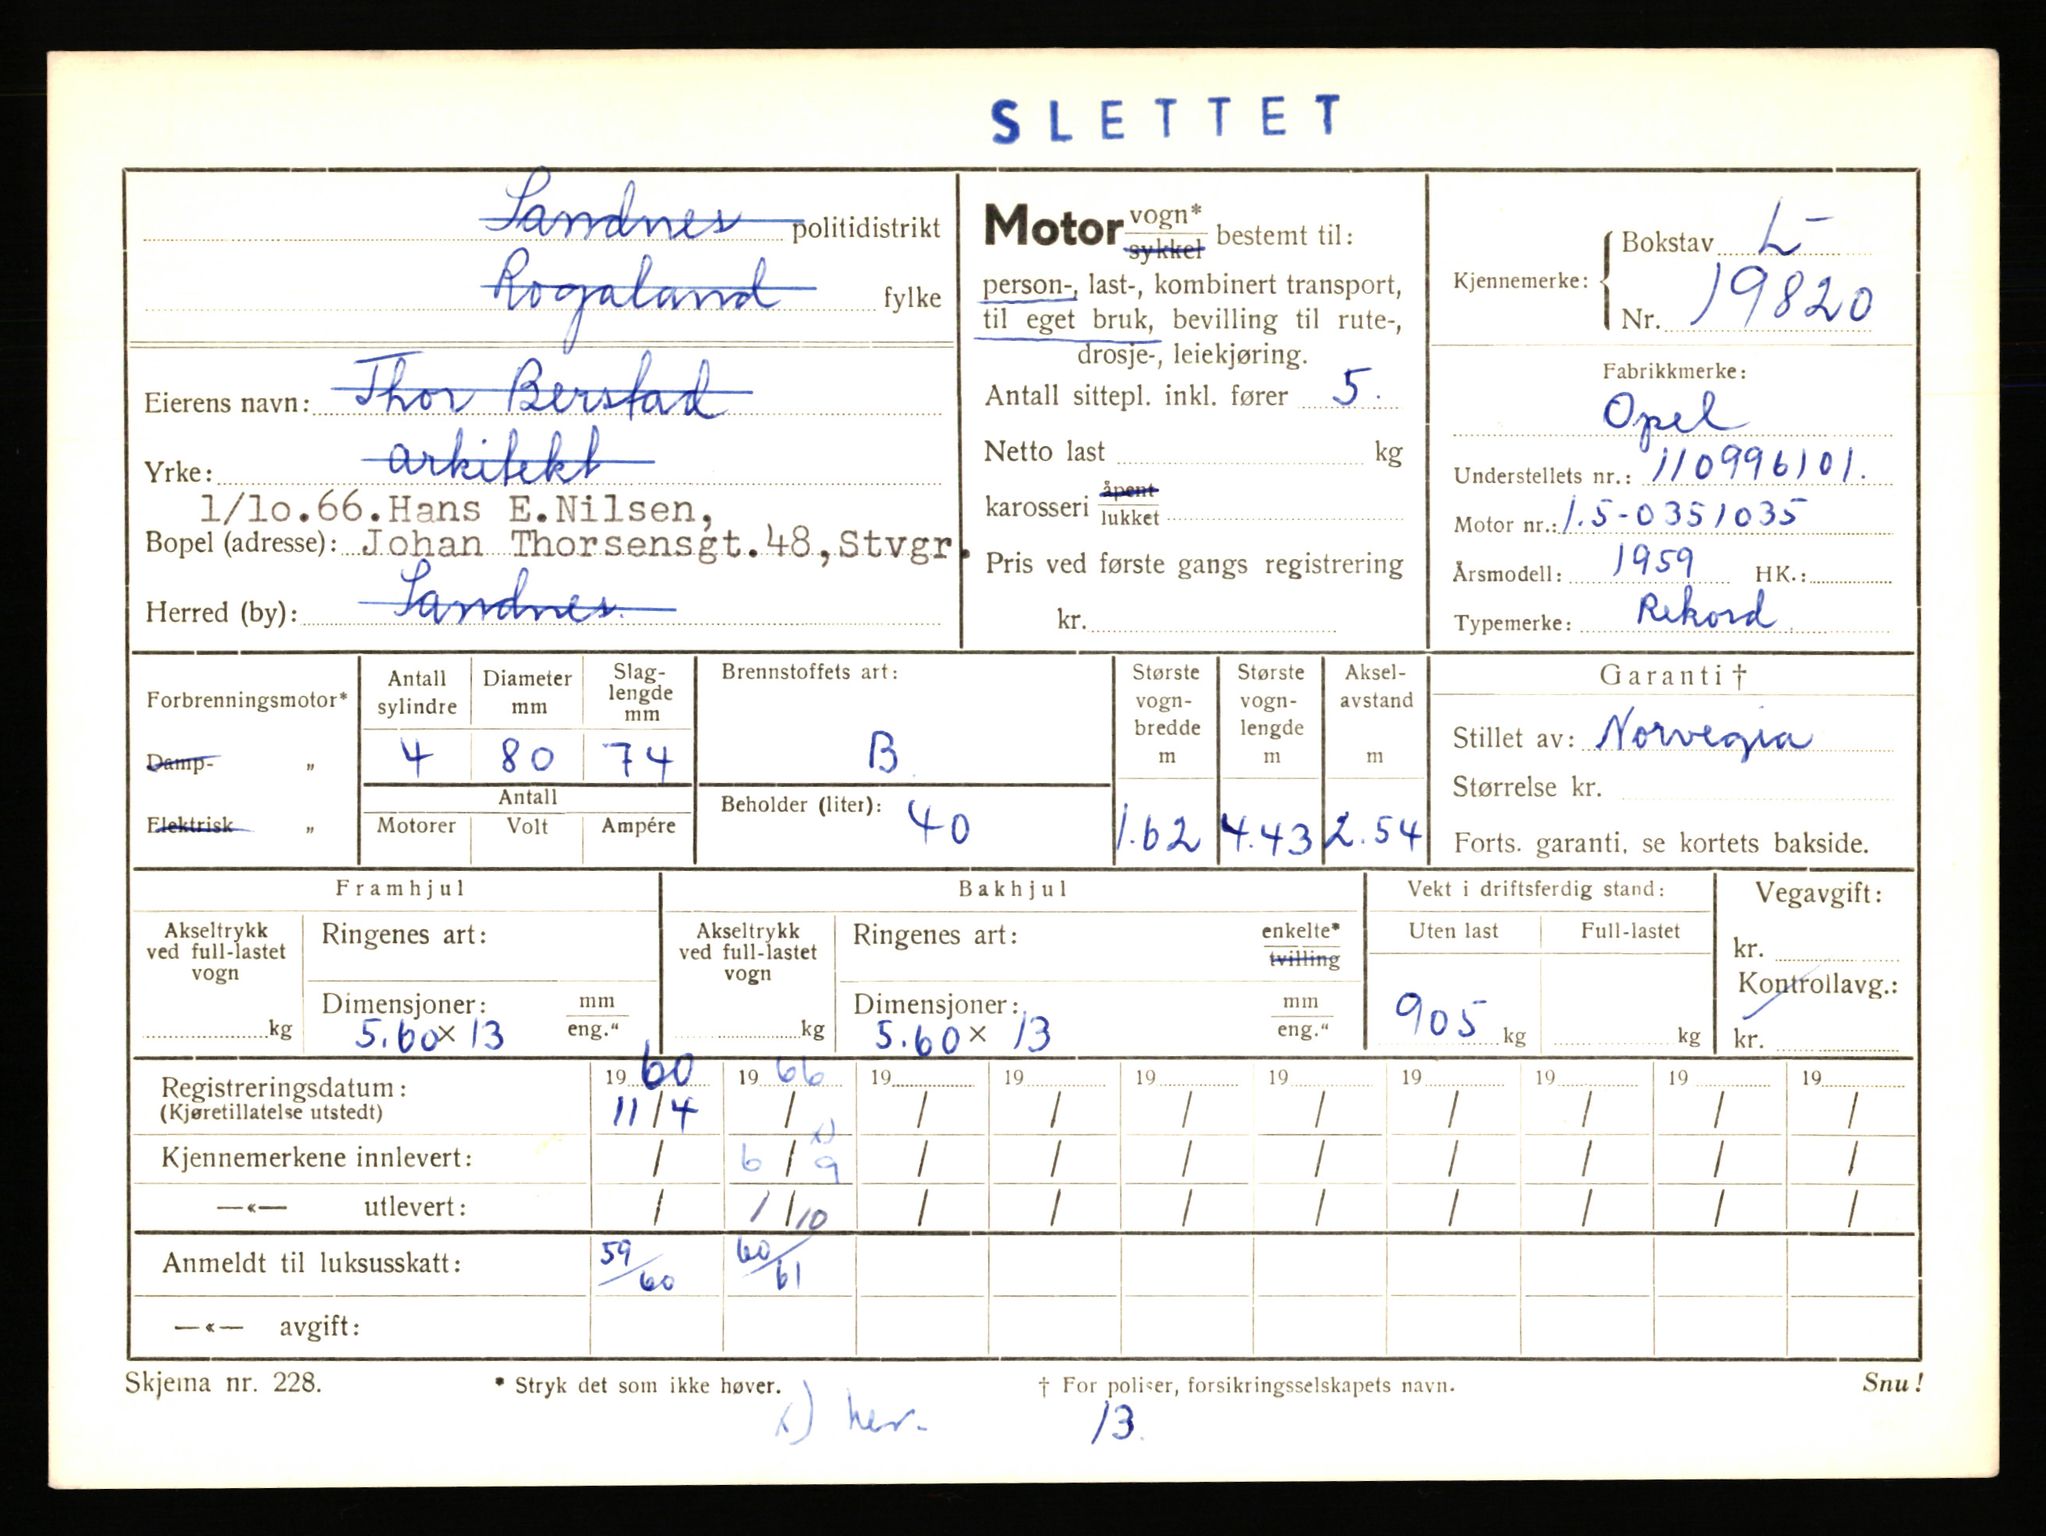 SLETTET
Sandnes politidistrikt
Rogaland fylke
Eierens navn: Thor Berstad
Yrke: arkitekt
1/10.66. Hans E. Nilsen,
Bopel (adresse): Johan Thorsensgt. 48, Stvgr.
Herred (by): Sandnes.
Motor vogn* sykkel bestemt til:
person-, last-, kombinert transport,
til eget bruk, bevilling til rute-,
drosje-, leiekjøring.
Antall sittepl. inkl. fører 5.
Netto last kg
karosseri åpent lukket
Pris ved første gangs registrering
kr.
Kjennemerke: Bokstav L-
Nr. 19820
Fabrikkmerke:
Opel
Understellets nr.: 110996101.
Motor nr.: 1.5-0351035
Årsmodell: 1959 HK.:
Typemerke: Rekord
Forbrenningsmotor*
Damp- „
Elektrisk „
Antall sylindre Diameter mm Slag-lengde mm
4 80 74
Antall
Motorer Volt Ampére
Brennstoffets art:
B
Beholder (liter): 40
Største vogn-bredde m Største vogn-lengde m Aksel-avstand m
1.62 4.43 2.54
Garanti †
Stillet av: Norvegia
Størrelse kr.
Forts. garanti, se kortets bakside.
Framhjul
Akseltrykk ved full-lastet vogn
kg
Ringenes art:
Dimensjoner: mm eng."
5.60 x 13
Bakhjul
Akseltrykk ved full-lastet vogn
kg
Ringenes art: enkelte* tvilling
Dimensjoner: mm eng."
5.60 x 13
Vekt i driftsferdig stand:
Uten last Full-lastet
905 kg kg
Vegavgift:
kr.
Kontrollavg.:
kr.
Registreringsdatum: 19 60 19 66 19 19 19 19 19 19 19 19
(Kjøretillatelse utstedt) 11/4 / / / / / / / / /
Kjennemerkene innlevert: / 6/9 x) / / / / / / / /
—«— utlevert: / 1/10 / / / / / / / /
Anmeldt til luksusskatt: 59/60 60/61
—«— avgift:
Skjema nr. 228. * Stryk det som ikke høver. † For poliser, forsikringsselskapets navn. Snu!
x) her. 13.